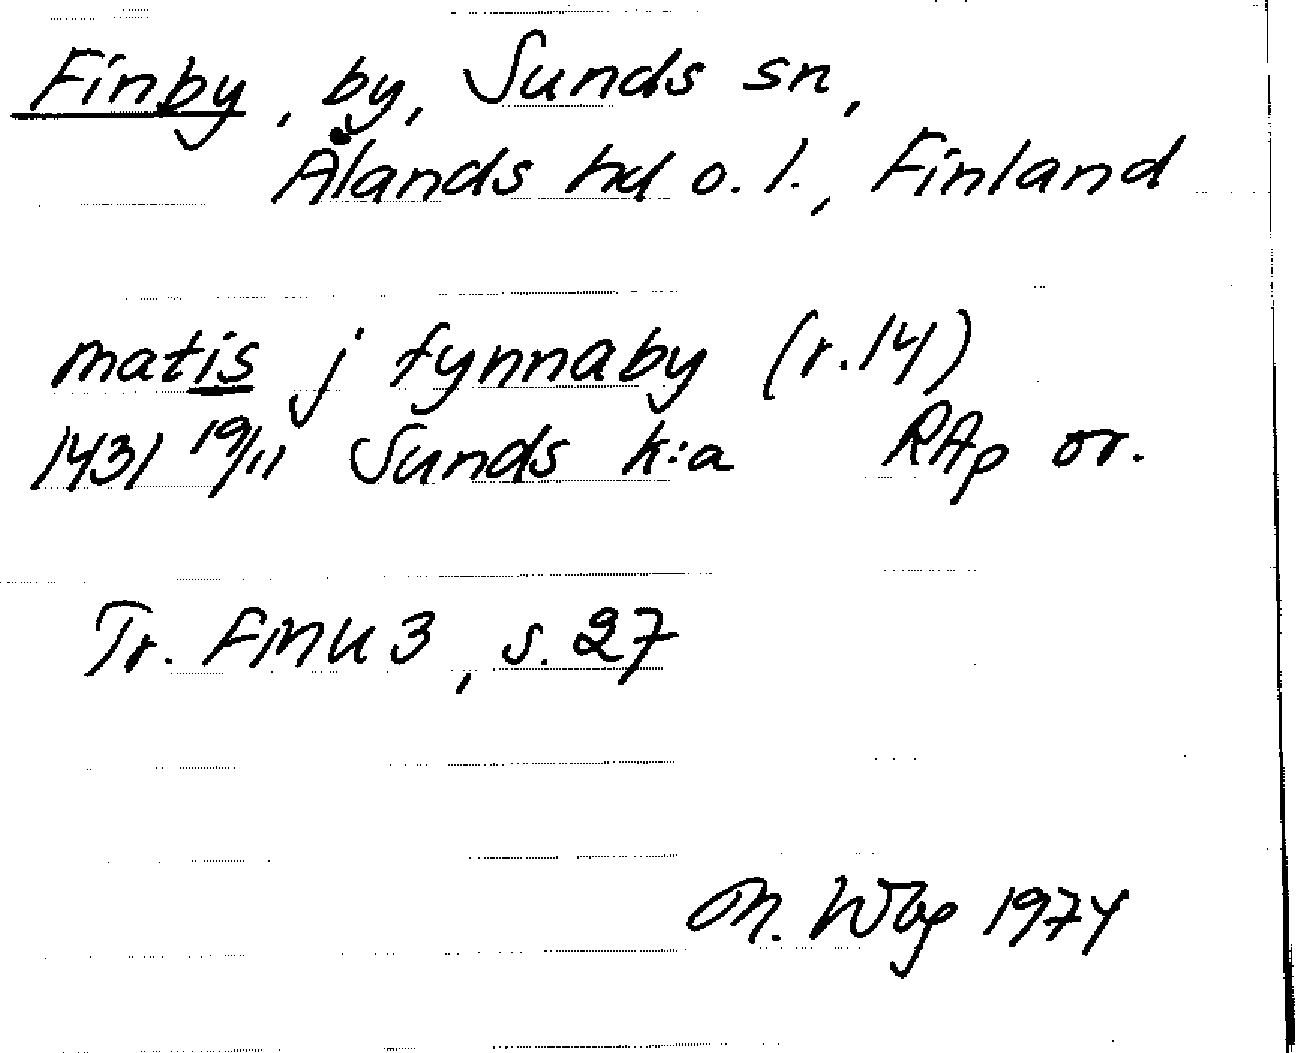 Finby, by, Sunds sn,
Ålands hd o. l., Finland
matis j fynnaby (r. 14)
1431 19/11 Sunds k:a RAp or.
Tr. FMU 3, s. 27
M. Wbg 1974